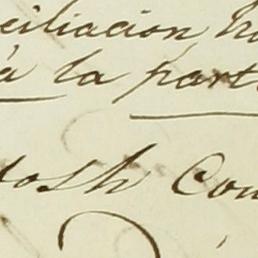 ciliacion
à la part
osh Con